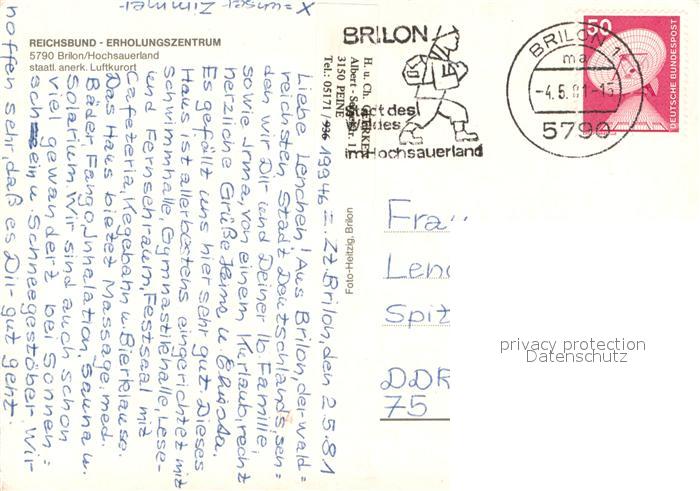 X = unser Zimmer
REICHSBUND - ERHOLUNGSZENTRUM
5790 Brilon/Hochsauerland
staatl. anerk. Luftkurort
H. u. Ch.
Albert -
3150 PEINE
Tel.: 05171 /
19946 =. Zt. Brilon, den 2.5.81
Liebe Lenchen! Aus Brilon, der wald=
reichsten Stadt Deutschlands, sen=
den wir Dir und Deiner lb. Familie,
sowie Irma, von einem Kurlaub, recht
herzliche Grüße Heinz u. Christa.
Es gefällt uns hier sehr gut. Dieses
Haus ist allerbestens eingerichtet mit
Schwimmhalle, Gymnastikhalle, Lese-
und Fernsehraum, Festsaal mit
Cafeteria, Kegelbahn u. Bierklause.
Das Haus bietet Massage, med.
Bäder, Fango, Inhalation, Sauna u.
Solarium. Wir sind auch schon
viel gewandert bei Sonnen=
schein u. Schneegestöber. Wir
hoffen sehr, daß es Dir gut geht.
Foto-Heitzig, Brilon
BRILON
Stadt des
Waldes
im Hochsauerland
BRILON 1
ma
-4.5.81-13
5790
50
DEUTSCHE BUNDESPOST
Frau
Len
Spit
DDR
75
privacy protection
Datenschutz